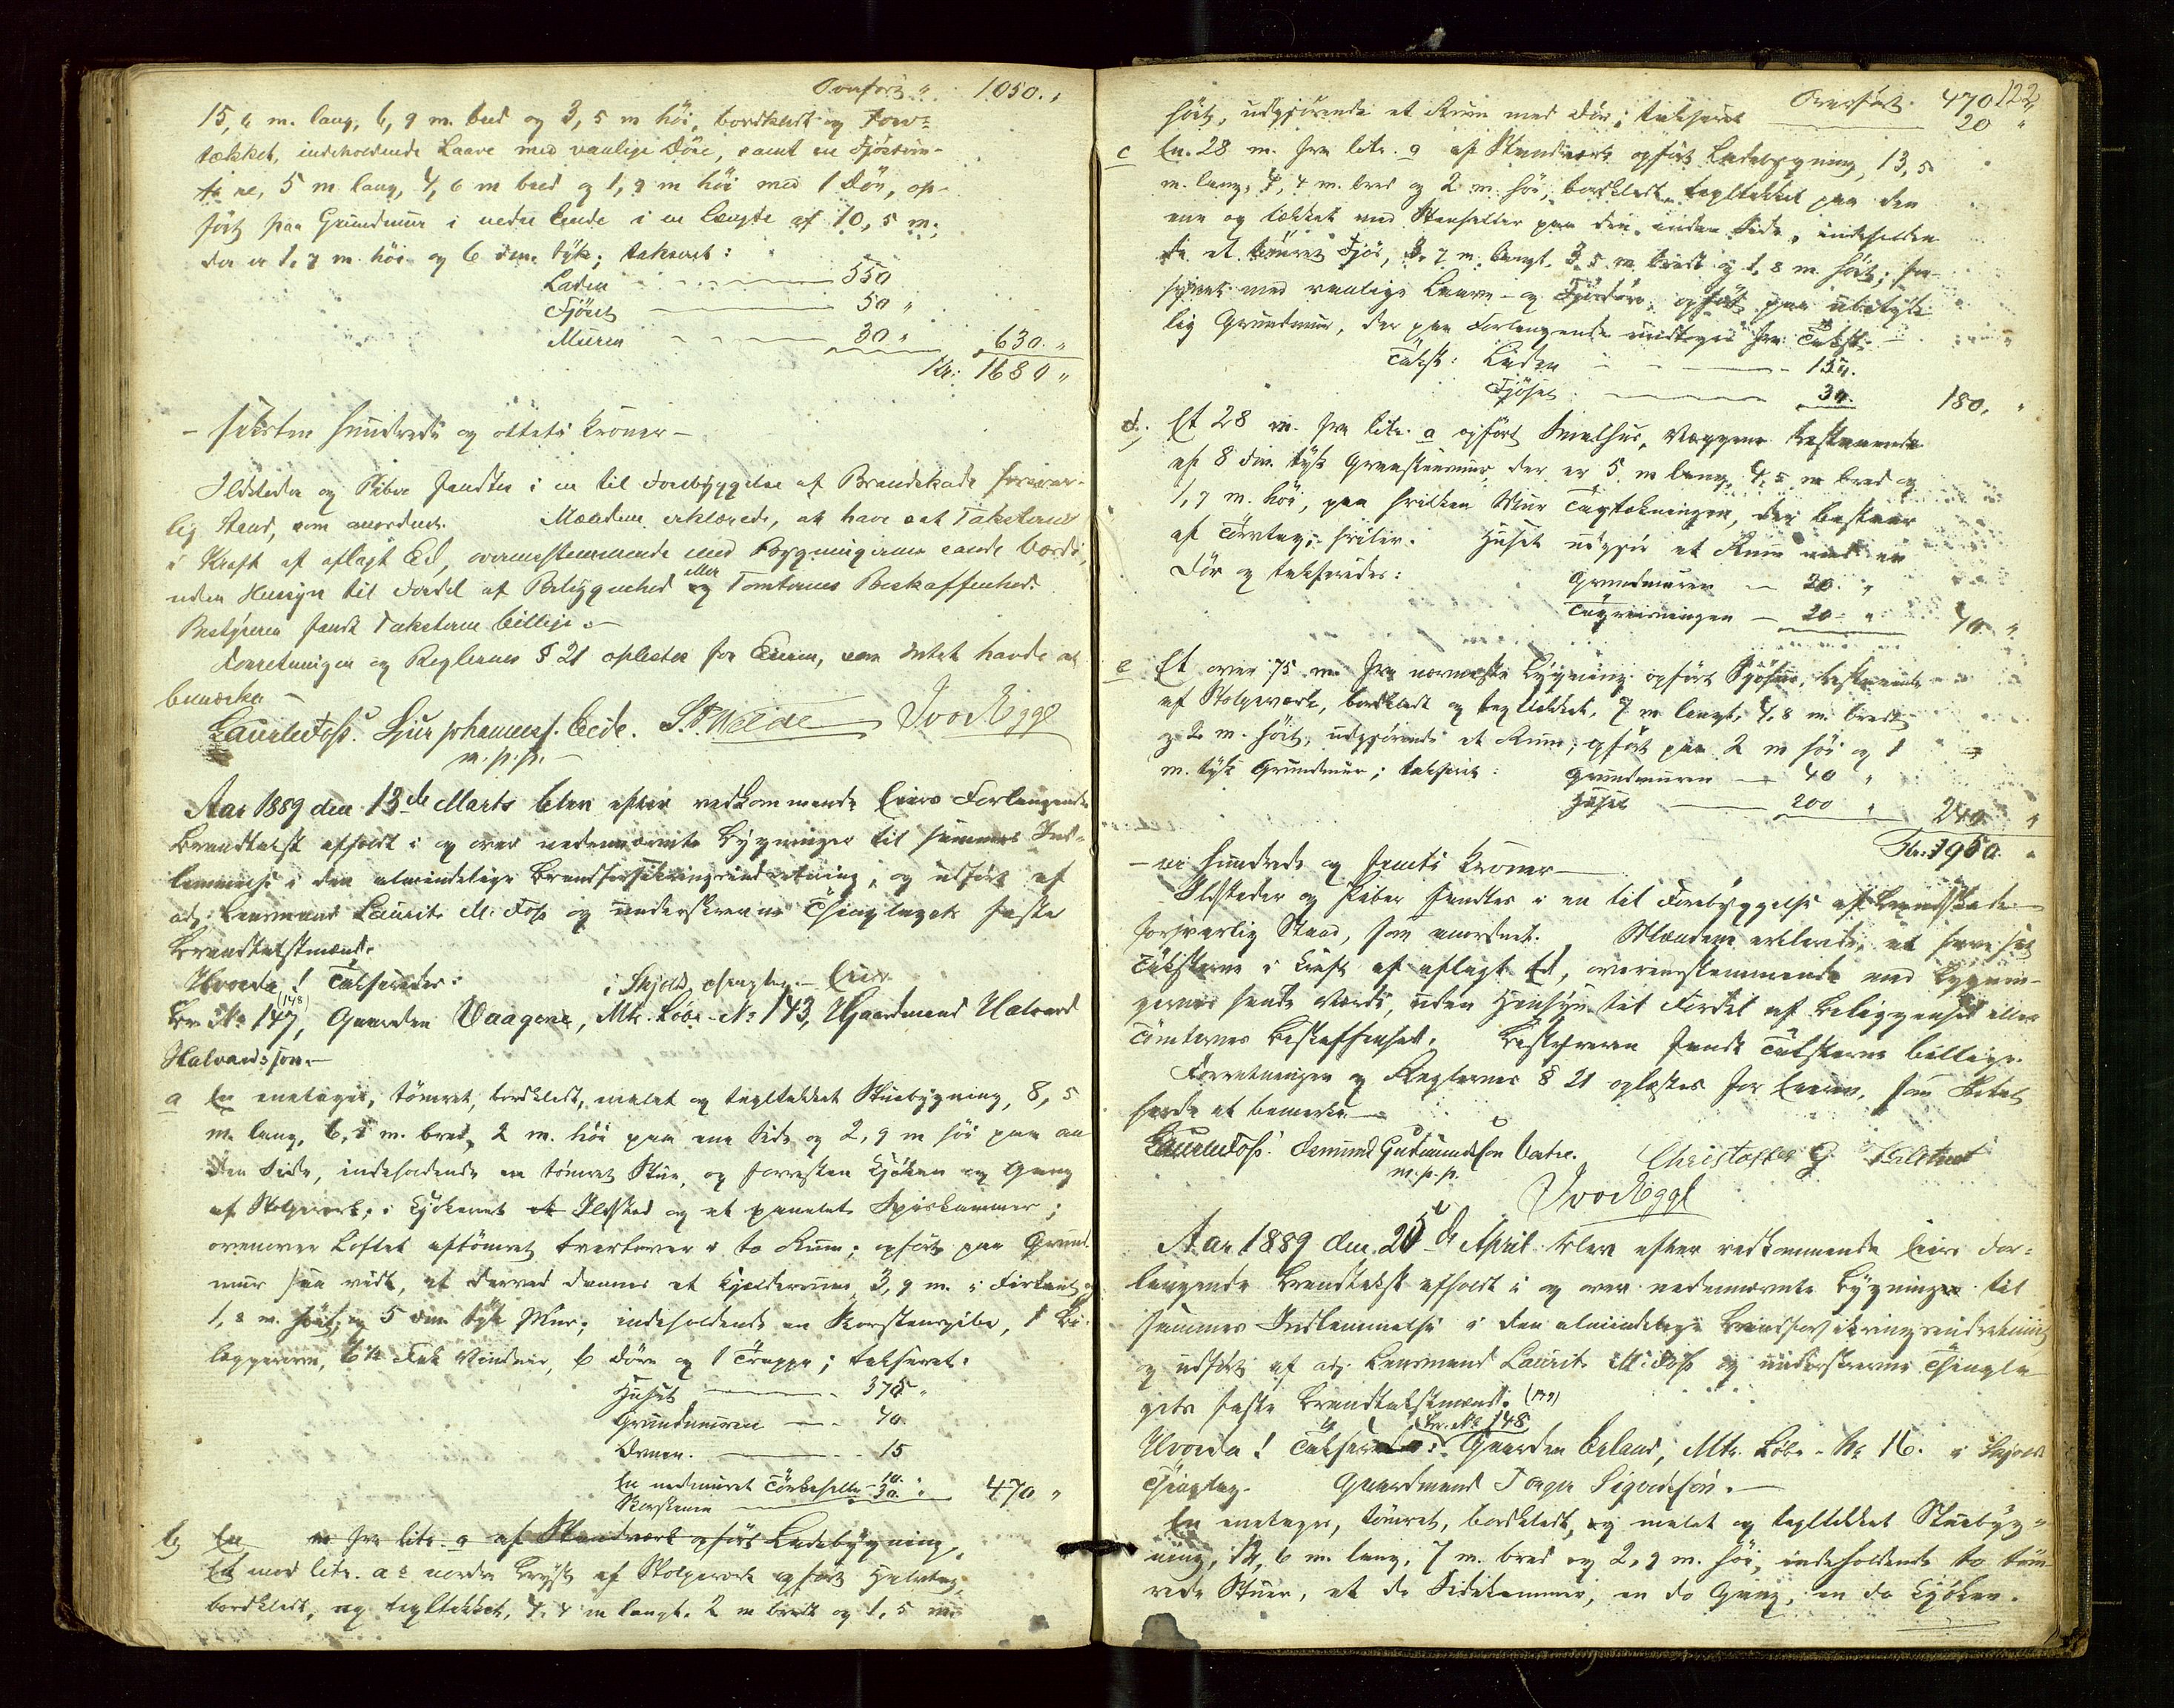 Overført " 1050. "
15,6 m. lang, 6,9 m. bred og 3,5 m høi, bordklædt og Torv-
tækket, indeholdende Laave med vanlige Døre, samt en
5 m lang, 4,6 m bred og 1,9 m høi med 1 Dør, op-
ført paa Grundmur i nedre Ende i en Længde af 10,5 m.
der er 1,7 m. høi og 6 dm. tyk; takseret:
Laden 550
Fjøset 50 "
Muren 30 " 630. "
Kr: 1680 "
- seksten hundrede og otteti Kroner -
Ildsteder og Piber fandtes i en til Forebyggelse af Brandskade forsvar-
lig Stand, som anordnet. Mændene erklærede, at have sat Taksterne
i Kraft af aflagt Ed, overensstemmende med Bygningernes sande Værdi,
uden Hensyn til Fordel af Beliggenhed eller Tomternes Beskaffenhed.
Bestyreren fandt Taksterne billige.-
Forretningen og Reglernes § 21 oplæstes for Eieren, som Intet havde at
bemærke -
Laur. M. Foss. Sjur Johannesf. Eide. Ivar Egge
m. p. p. -
Aar 1889 den 13de Marts blev efter vedkommende Eiers Forlangende
Brandtakst afholdt i og over nedennævnte Bygninger til sammes Ind-
lemmelse i den almindelige Brandforsikringsindretning, og udført af
adj: Lensmand Laurits M. Foss og underskrevne Thinglagets faste
Brandtakstmænd.
Hvorda! Takseredes: i Skjolds Thinglag.- Eier
(148)
Br. No 147, Gaarden Vaagene, Mtr. Løbe-No 143, Gaardmand Halvard
Halvardsson.-
a En enetages, tømret, bordklædt, malet og tegltækket Stuebygning, 8,5
m. lang, 6,8 m. bred, 2 m. høi paa ene Side og 2,9 m høi paa an
den Side, indeholdende en tømret Stue, og forresten Kjøken og Gang
af Stolpeverk; i Kjøkenet et Ildsted og et panelet Spiskammer;
ovenover Loftet aftømret tvertover i to Rum; opført paa Grund-
mur saa vidt, at derved dannes et Kjelderrum 3,9 m. i Firkant og
1,8 m. høit, og 5 dm tyk Mur; indeholdende en Skorstenspibe, 1 Bi-
læggerovn, 6½ Fak Vinduer, 6 Døre og 1 Trappe; takseret:
Huset 375 "
Grundmuren 40
Ovnen. 15
En nedmuret Tørkehelle 10. "
Skorstenen 30. " 470 "
b) En m fra litr. a af Standverk opført Ladebygning,
Et mod litr. a's nordre Bryst af Stolpeverk opført Halvtag,
bordklædt, og tegltækket, 4,4 m langt. 2 m bredt og 1,5 m
Overført 470 122
høit, udgjørende et Rum med Dør; takseret 20 "
c En 28 m. fra litr. a af Standverk opført Ladebygning, 13,5
m. lang, 4,4 m. bred og 2 m. høi, bordklædt, tegltækket paa den
ene og tækket med Stenheller paa den anden Side, indeholden
de et tømret Fjøs, 3,7 m. langt, 3,5 m. bredt og 1,8 m. høit; for-
synet med vanlige Laave- og Fjøsdøre, opført paa ubetyde
lig Grundmur, der paa Forlangende undtoges fra Takst.
Takst: Laden 150.
Fjøset 30. 180. "
d. Et 28 m. fra litr. a opført Smalhus, Væggene bestaaende
af 8 dm. tyk Graastensmur, der er 5 m lang, 4,5 m bred og
1,7 m. høi, paa hvilken Mur Tagtækningen, der bestaar
af Torvtag, hviler. Huset udgjør et Rum med en
Dør og takseredes: Grundmuren 20. "
Tagreisningen 20 " 40. "
e Et over 75 m. fra nærmeste Bygning opført Sjøhus, bestaaende
af Stolpeværk, bordklædt og tegltækket, 7 m langt, 4,8 m. bredt
og 2 m. høit, udgjørende et Rum; opført paa 2 m høi og 1
m. tyk Grundmur; takseret: Grundmuren 40 "
Huset 200 " 240 "
Kr: 950. "
- ni hundrede og femti Kroner -
Ildsteder og Piber fandtes i en til Forebyggelse af Brandskade
forsvarlig Stand, som anordnet. Mændene erklærede, at have sat
Taksterne i Kraft af aflagt Ed, overensstemmende med Bygnin-
gernes sande Værdi, uden Hensyn til Fordel af Beliggenhed eller
Tomternes Beskaffenhed. Bestyreren fandt Taksterne billige.
Forretningen og Reglernes § 21 oplæstes for Eieren, som Intet
havde at bemærke -
Laur. M. Foss. Gudmundsson Vatne. Christoffer G.
m. p. p.
Ivar Egge
Aar 1889 den 25de April blev efter vedkommende Eiers For-
langende Brandtakst afholdt i og over nedennævnte Bygninger til
sammes Indlemmelse i den almindelige Brandforsikringsindretning
og udført af adj: Lensmand Laurits M. Foss og underskrevne Thingla
gets faste Brandtakstmænd. (149)
Br. No 148
Hvorda! Takseredes: Gaarden Erland, Mtr. Løbe-No 16. i Skjold
Thinglag. Gaardmand Torger Sigurdsson. -
En enetages, tømret, bordklædt, og malet og tegltækket Stuebyg-
ning, 12,6 m. lang, 7 m. bred og 2,9 m. høi, indeholdende to tøm
rede Stuer, et do Sidekammer, en do Gang, en do Kjøken.